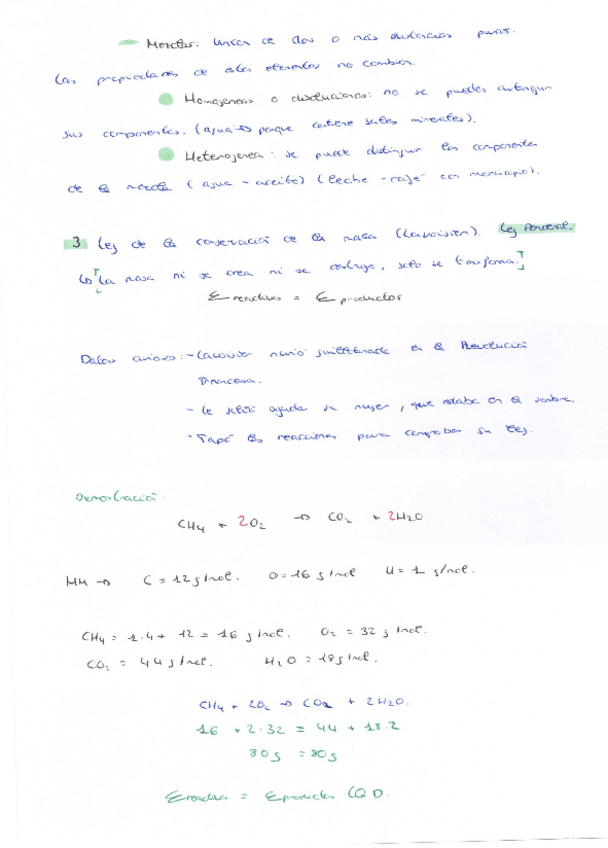 Mezclas: unión de dos o más sustancias puras.
Las propiedades de estos elementos no cambian.
Homogéneas o disoluciones: no se pueden distinguir
sus componentes. (agua porque contiene sales minerales).
Heterogénea: se puede distinguir los componentes
de la mezcla (agua - aceite) (leche - café
3 Ley de la conservación de la masa (Lavoisier). Ley Ponderal.
"La masa ni se crea ni se destruye, solo se transforma."
Σ reactivos = Σ productos
Datos curiosos: - Lavoisier murió guillotinado en la Revolución
Francesa.
- Le ayuda su mujer, que estaba en la sombra.
- Tapó las reacciones para comprobar su ley.
Demostración.
CH4 + 2O2 → CO2 + 2H2O
MM → C = 12 g/mol. O = 16 g/mol H = 1 g/mol.
CH4 = 1·4 + 12 = 16 g/mol. O2 = 32 g/mol.
CO2 = 44 g/mol. H2O = 18 g/mol.
CH4 + 2O2 → CO2 + 2H2O.
16 + 2·32 = 44 + 18·2
80g = 80g
Σ reactivos = Σ productos CQD.